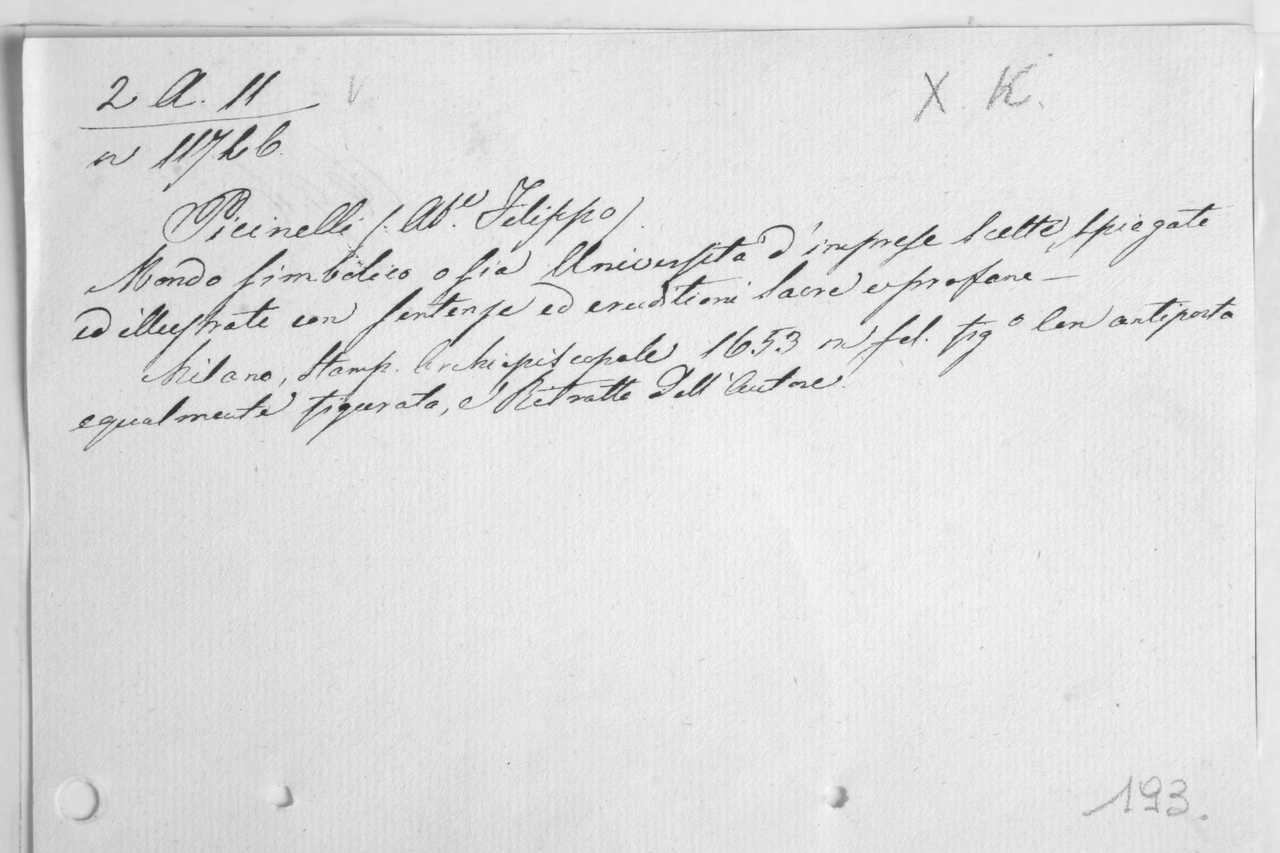 2 A. 11 V X. K.
n 11726.
Picinelli (Ab.e Filippo)
Mondo simbolico o sia Università d'imprese scelte, spiegate
ed illustrate con sentenze ed eruditioni sacre e profane —
Milano, Stamp. Archiepiscopale 1653 in fol. fig.o Con antiporta
egualmente figurata, e Ritratto Dell'Autore.
193.